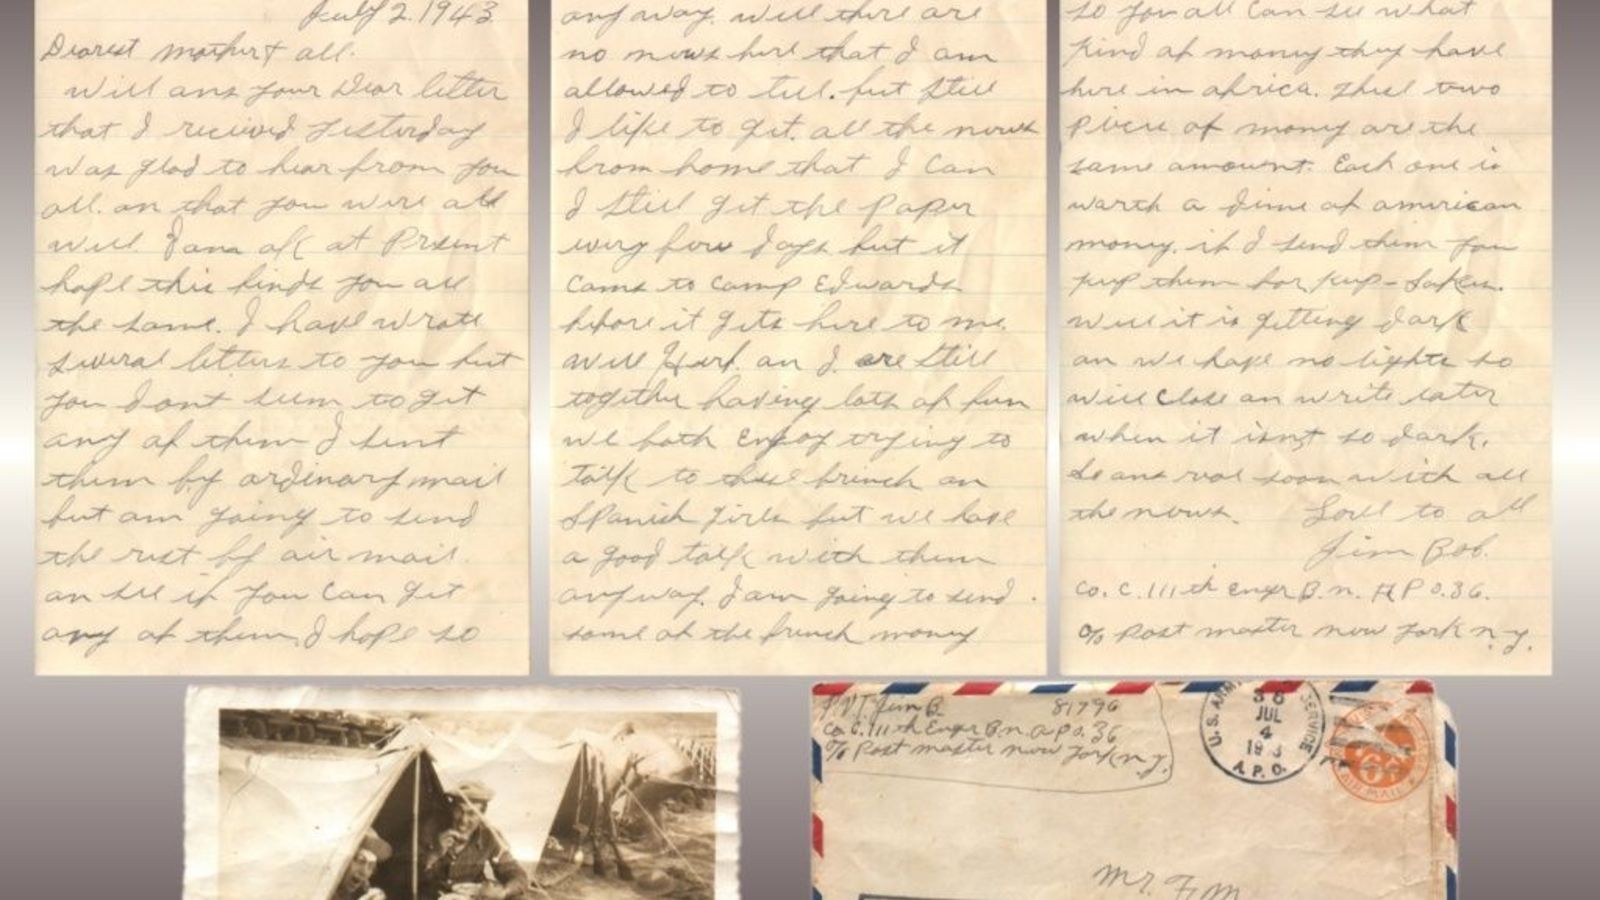 July 2. 1943
Dearest mother & all.
will ans your Dear letter
that I recieved yesterday
was glad to hear from you
all. an that you were all
well. I am ok at Present
hope this finds you all
the same. I have wrote
several letters to you but
you dont seem to get
any of them I sent
them by ordinary mail
but am going to send
the rest by air mail.
an see if you can get
any of them, I hope so
any way. well there are
no news here that I am
allowed to tell. but still
I like to get. all the news
from home that I can
I still get the paper
every few days but it
cams to camp Edwards
before it gets here to me.
well Herb. an I. are still
together having lots of fun
we both enjoy trying to
talk to these french an
Spanish girls but we have
a good talk with them
anyway. I am going to send
some of the french money
so you all can see what
kind of money they have
here in africa. these two
piece of money are the
same amount. Each one is
warth a dime of american
money. if I send them you
kep them for kep-sakes.
well it is getting dark
an we have no lights so
will close an write later
when it isnt so dark.
so ans real soon with all
the news. Love to all
Jim Bob.
Co. C. 111th engr B.n. A P O.36.
c/o Post master new york n.y.
PVT. Jim B. 81796
Co C. 111th Engr B.n. a p o. 36
c/o Post master new york n.y.
U.S. ARMY SERVICE
JUL
4
A.P.O.
6¢
AIR MAIL
Mr. F. M.